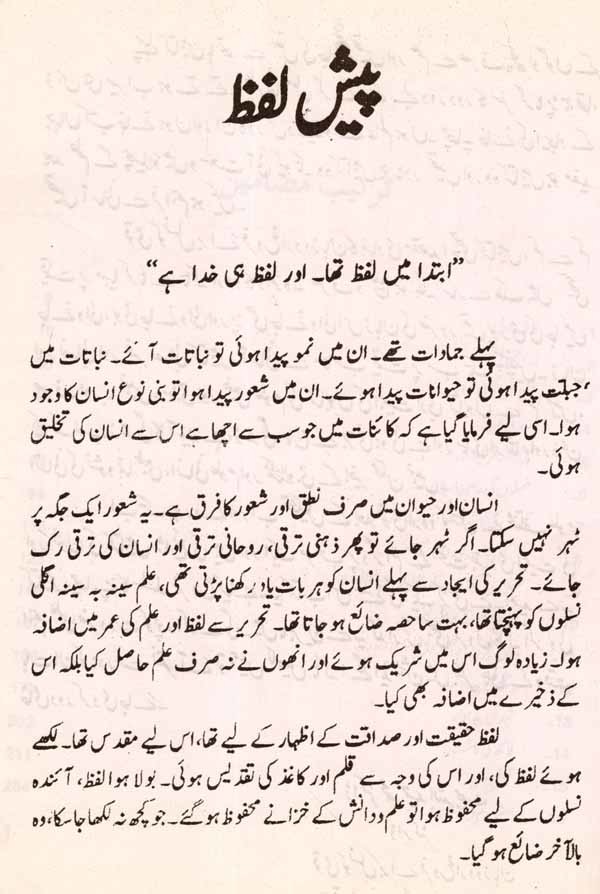 پیش لفظ
”ابتدا میں لفظ تھا۔ اور لفظ ہی خدا ہے“
پہلے جمادات تھے۔ ان میں نمو پیدا ہوئی تو نباتات آئے۔ نباتات میں
جبلت پیدا ہوئی تو حیوانات پیدا ہوئے۔ ان میں شعور پیدا ہوا تو بنی نوع انسان کا وجود
ہوا۔ اسی لیے فرمایا گیا ہے کہ کائنات میں جو سب سے اچھا ہے اس سے انسان کی تخلیق
ہوئی۔
انسان اور حیوان میں صرف نطق اور شعور کا فرق ہے۔ یہ شعور ایک جگہ پر
ٹہر نہیں سکتا۔ اگر ٹہر جائے تو پھر ذہنی ترقی، روحانی ترقی اور انسان کی ترقی رک
جائے۔ تحریر کی ایجاد سے پہلے انسان کو ہر بات یاد رکھنا پڑتی تھی، علم سینہ بہ سینہ اگلی
نسلوں کو پہنچتا تھا، بہت سا حصہ ضائع ہو جاتا تھا۔ تحریر سے لفظ اور علم کی عمر میں اضافہ
ہوا۔ زیادہ لوگ اس میں شریک ہوئے اور انھوں نے نہ صرف علم حاصل کیا بلکہ اس
کے ذخیرے میں اضافہ بھی کیا۔
لفظ حقیقت اور صداقت کے اظہار کے لیے تھا، اس لیے مقدس تھا۔ لکھے
ہوئے لفظ کی، اور اس کی وجہ سے قلم اور کاغذ کی تقدیس ہوئی۔ بولا ہوا لفظ، آئندہ
نسلوں کے لیے محفوظ ہوا تو علم و دانش کے خزانے محفوظ ہو گئے۔ جو کچھ نہ لکھا جا سکا، وہ
بالآخر ضائع ہو گیا۔